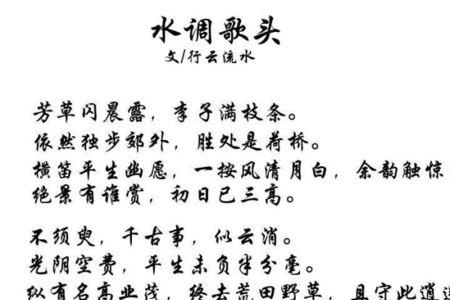 水调歌头
文/行云流水
芳草闪晨露，李子满枝条。
依然独步郊外，胜处是荷桥。
横笛平生幽愿，一按风清月白，余韵触惊
绝景有谁赏，初日已三高。
不须臾，千古事，似云消。
光阴空费，平生未负半分毫。
纵有名高业茂，终去荒田野草，且守此逍遥